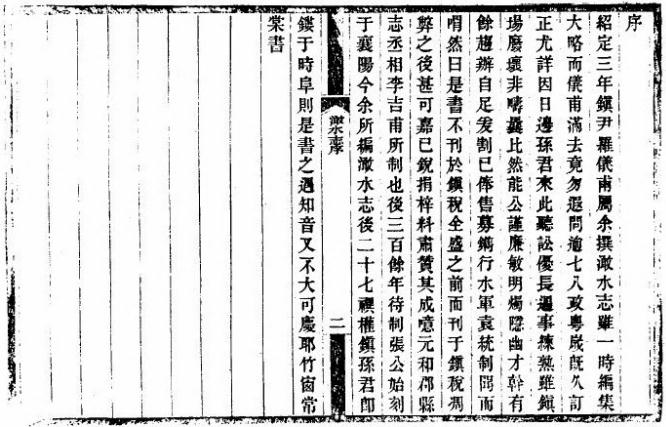 序
紹定三年鎮尹羅儀甫屬余撰澉水志雖一時編集
大略而儀甫滿去竟勿遐問逾七八政粵歲旣久訂
正尤詳因日邊孫君來此聽訟優長遇事練熟雖鎮
場廢壞非疇曩比然能公謹廉敏明燭隱幽才幹有
餘趨辦自足爰割已俸售募鐫行水軍袁統制聞而
喟然曰是書不刊於鎮稅全盛之前而刊于鎮稅凋
弊之後甚可嘉已銳捐梓料肅贊其成噫元和郡縣
志丞相李吉甫所制也後三百餘年待制張公始刻
于襄陽今余所編澉水志後二十七禩權鎮孫君卽
序
二
鋟于時阜則是書之遇知音又不大可慶耶竹窗常
棠書